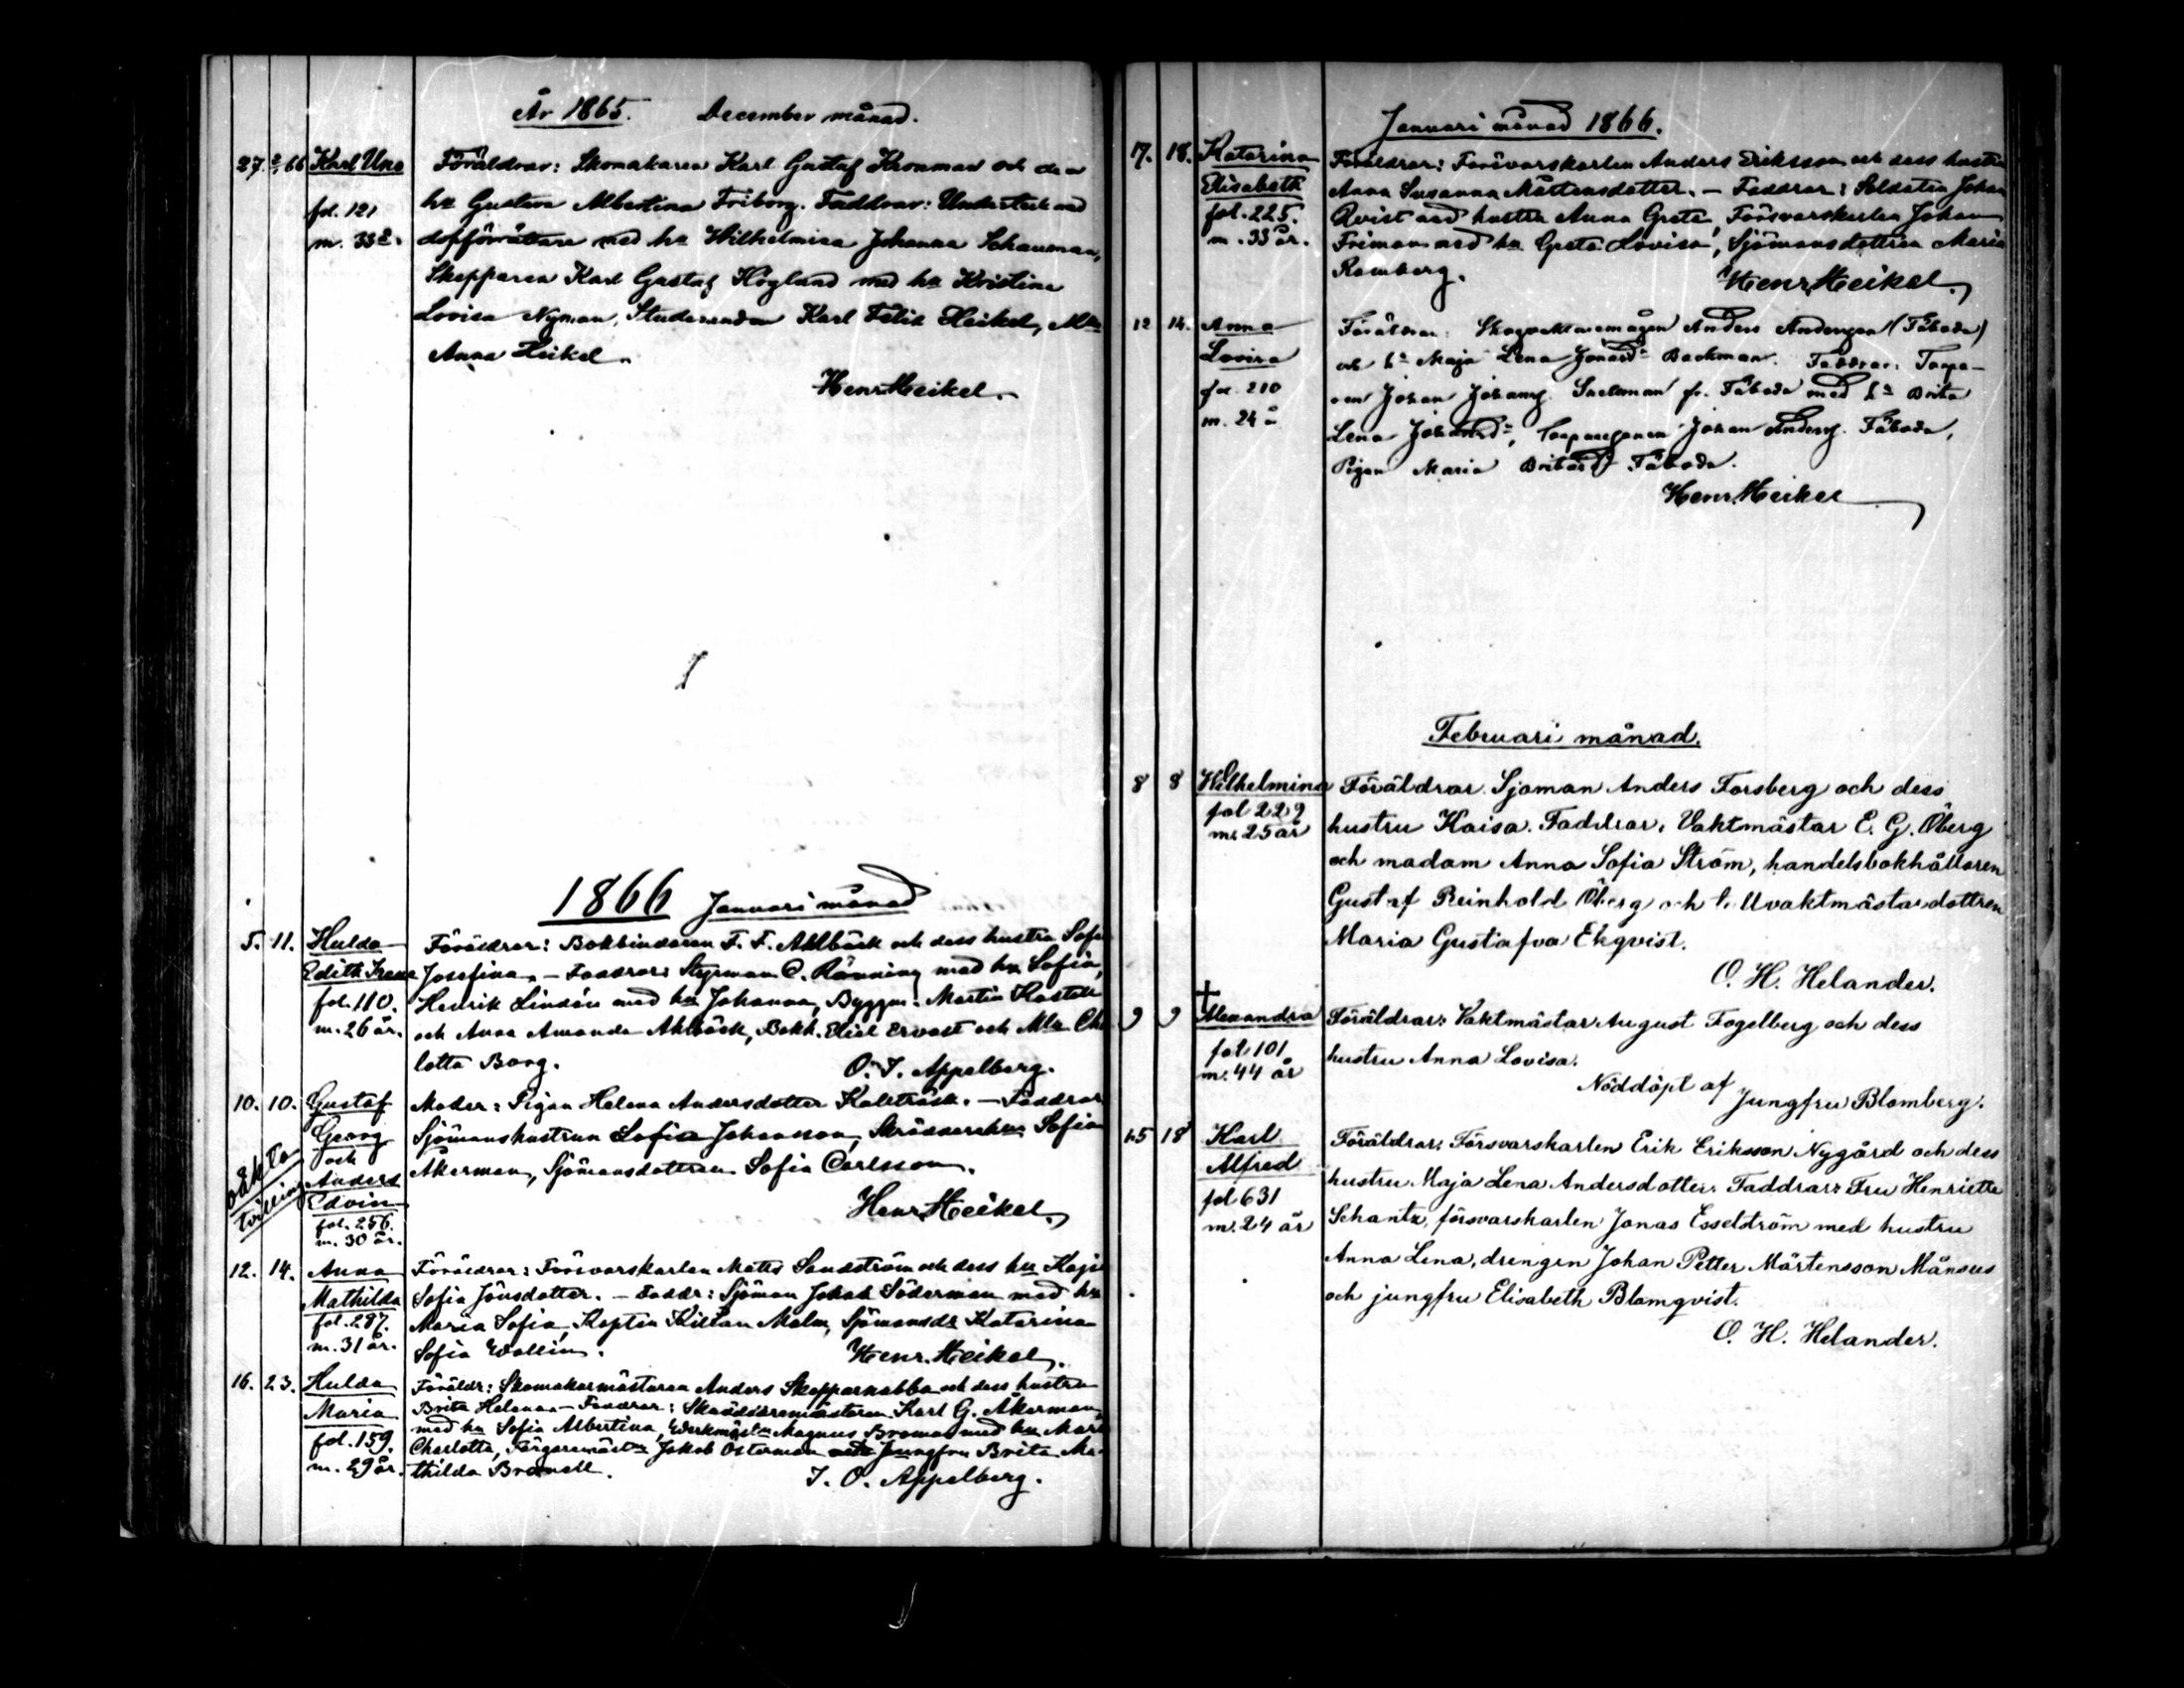 År 1865. December månad.
27. 2/1 66 Karl Uno Föräldrar: Skomakaren Karl Gustaf Kronman och dess
fol. 121 hu Gustava Albertina Friborg. Faddrar: Undertecknad
m. 33 å. dopförrättare med hu Wilhelmina Johanna Schauman,
Skepparen Karl Gustaf Höglund med hu Kristina
Lovisa Nyman, Studeranden Karl Felix Heikel, Mll
Anna Heikel.
Henr. Heikel.
1866 Januari månad
5. 11. Hulda Föräldrar: Bokbindaren F. F. Ahlbäck och dess hustru Sofi
Edith Irene Josefina. – Faddrar: Styrman C. Rönning med hu Sofia,
fol. 110. Henrik Lindén med hu Johanna, Byggm. Martin
m. 26 år. och Anna Amanda Ahlbäck, Bokh. Elid Ervast och Mlle Char
lotta Borg. O. I. Appelberg.
10. 10. Gustaf Moder: Pigan Helena Andersdotter Kalträsk. – Faddrar
Georg Sjömanshustrun Sofia Johansson, Skräddareh:n Sofia
och
oäkta Anders Åkerman, Sjömansdottren Sofia Carlsson.
tvilling Edvin Henr. Heikel.
fol. 256.
m. 30 år.
12. 14. Anna Föräldrar: Försvarskarlen Matts Sandström och dess hu Kajsa
Mathilda Sofia Jönsdotter. – Faddr: Sjöman Jakob Söderman med hu
fol. 287. Maria Sofia, Kapten Kilian Malm, Sjömansdr Katarina
m. 31 år. Sofia Wallin. Henr. Heikel.
16. 23. Hulda Föräldr: Skomakarmästaren Anders Skepparnabba och dess hustru
Maria Brita Helena – Faddrar: Skräddaremästaren Karl G. Åkerman
med hu Sofia Albertina, Werkmäst:n Magnus Broman med hu Mari
fol. 159. Charlotta, Färgaremäst:n Jakob Österman och Jungfru Brita Ma-
m. 29 år. thilda Brandt. I. O. Appelberg.
Januari månad 1866.
17. 18. Katarina Föräldrar: Försvarskarlen Anders Eriksson och dess hustru
Elisabeth Anna Susanna Mårtensdotter. – Faddrar: Soldaten Johan
fol. 225. Qvist med hustru Anna Greta, Försvarskarlen Johan
m. 33 år. Friman med hu Greta Lovisa, Sjömansdottren Maria
Romberg. Henr. Heikel.
12 14. Anna Föräldrar: Skogvaktaremågen Anders Andersson (Fäboda)
Lovisa och h:u Maja Lena Jonasd:r Backman. Faddrar: Torpa-
fol. 210 ren Johan Johans. Sackman fr. Fäboda med h:u Brita
m. 24 å Lena Johansd:r, Johan Anders. Fäboda,
Pigan Maria Fäboda.
Henr. Heikel
Februari månad.
8 8 Wilhelmina Föräldrar. Sjöman Anders Forsberg och dess
fol 229 hustru Kaisa. Faddrar. Vaktmästar E. G. Öberg
m. 25 år och madam Anna Sofia Ström, handelsbokhållaren
Gustaf Reinhold Öberg och Uvaktmästardottren
Maria Gustafva Ekqvist.
O. H. Helander.
† 9 9 Alexandra Föräldrar: Vaktmästar August Fogelberg och dess
fol 101 hustru Anna Lovisa.
m. 44 år Nöddöpt af
Jungfru Blomberg.
15 18 Karl Föräldrar. Försvarskarlen Erik Eriksson Nygård och dess
Alfred hustru Maja Lena Andersdotter. Faddrar: Fru Henriette
fol 631 Schantz, försvarskarlen Jonas Esselström med hustru
m. 24 år Anna Lena, drengen Johan Petter Mårtensson Månsus
och jungfru Elisabeth Blomqvist.
O. H. Helander.